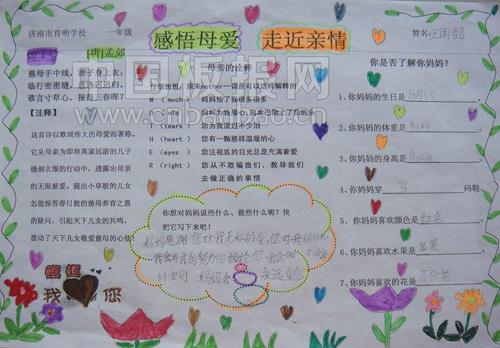 济南市育明学校 一年级
感悟母爱 走近亲情
姓名
[唐]孟郊
慈母手中线，游子身上衣；
临行密密缝，意恐迟迟归。
谁言寸草心，报得三春晖？
【注释】
这首诗以歌颂伟大的母爱而著称。
它从母亲为即将离家远游的儿子
缝制衣服的行动中，透露出母亲
的无限慈爱。提出小草般的儿女
怎能报答春日般的慈母养育之恩
的疑问，引起天下儿女的共鸣，
拨动了天下儿女敬爱慈母的心弦！
妈妈
我 您
母亲的诠释
仔细想想，原来mother一词是可以这样解释的
M （much） 妈妈给了我很多很多
O
T （tears） 您为我流过不少泪
H （heart） 您有一颗慈祥温暖的心
E （eyes） 您注视我的目光总是充满着爱
R （right） 您从不欺骗我们，教导我们
去做正确的事情
你想对妈妈说些什么、做些什么呢？快
把它写下来吧！
妈妈感谢您对我无私的爱，您对我的
我会用我的努力回报给您
永远
你是否了解你妈妈？
1、你妈妈的生日是
2、你妈妈的体重是 50kg
3、你妈妈的身高是
4、你妈妈穿 36 码鞋
5、你妈妈喜欢颜色是 红色
6、你妈妈喜欢水果是 苹果
7、你妈妈喜欢的花是
中国板报网
cnbanbao.cn